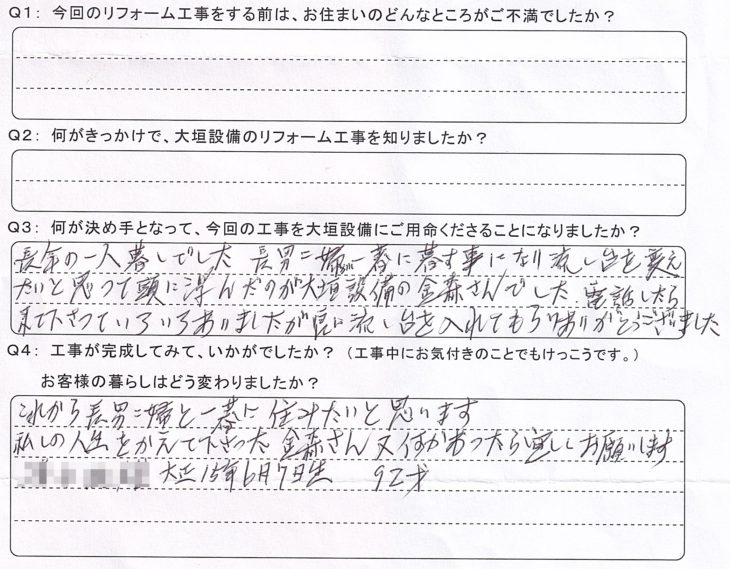 Q1： 今回のリフォーム工事をする前は、お住まいのどんなところがご不満でしたか？
Q2： 何がきっかけで、大垣設備のリフォーム工事を知りましたか？
Q3： 何が決め手となって、今回の工事を大垣設備にご用命くださることになりましたか？
長年の一人暮しでした 長男夫婦が一諸に暮す事になり流し台を変え
たいと思って頭に浮んだのが大垣設備の金森さんでした 電話したら
来て下さっていろいろありましたが 流し台を入れてもらいありがとうございました
Q4： 工事が完成してみて、いかがでしたか？（工事中にお気付きのことでもけっこうです。）
お客様の暮らしはどう変わりましたか？
これから長男夫婦と一諸に住みたいと思います
私しの人生をかえて下さった金森さん又何かあったら宜しくお願いします
大正15年6月7日生 92才